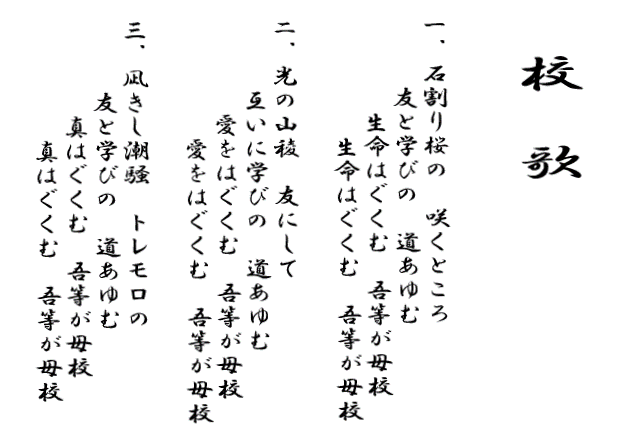 校歌
一、石割り桜の　咲くところ
友と学びの　道あゆむ
生命はぐくむ　吾等が母校
生命はぐくむ　吾等が母校
二、光の山稜　友にして
互いに学びの　道あゆむ
愛をはぐくむ　吾等が母校
愛をはぐくむ　吾等が母校
三、凪きし潮騒　トレモロの
友と学びの　道あゆむ
真はぐくむ　吾等が母校
真はぐくむ　吾等が母校